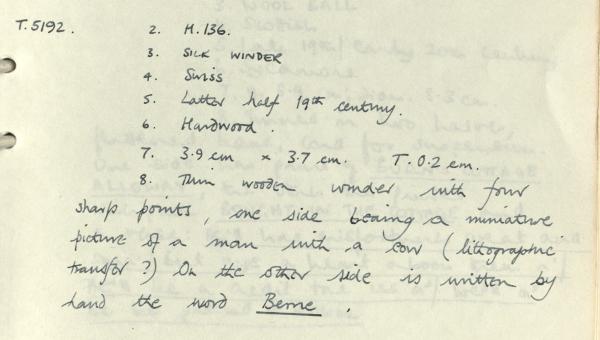 T.5192. 2. H.136.
3. SILK WINDER
4. Swiss
5. Latter half 19th century.
6. Hardwood.
7. 3.9 cm x 3.7 cm. T. 0.2 cm.
8. Thin wooden winder, with four
sharp points, one side bearing a miniature
picture of a man with a cow (lithographic
transfer?) On the other side is written by
hand the word Berne.